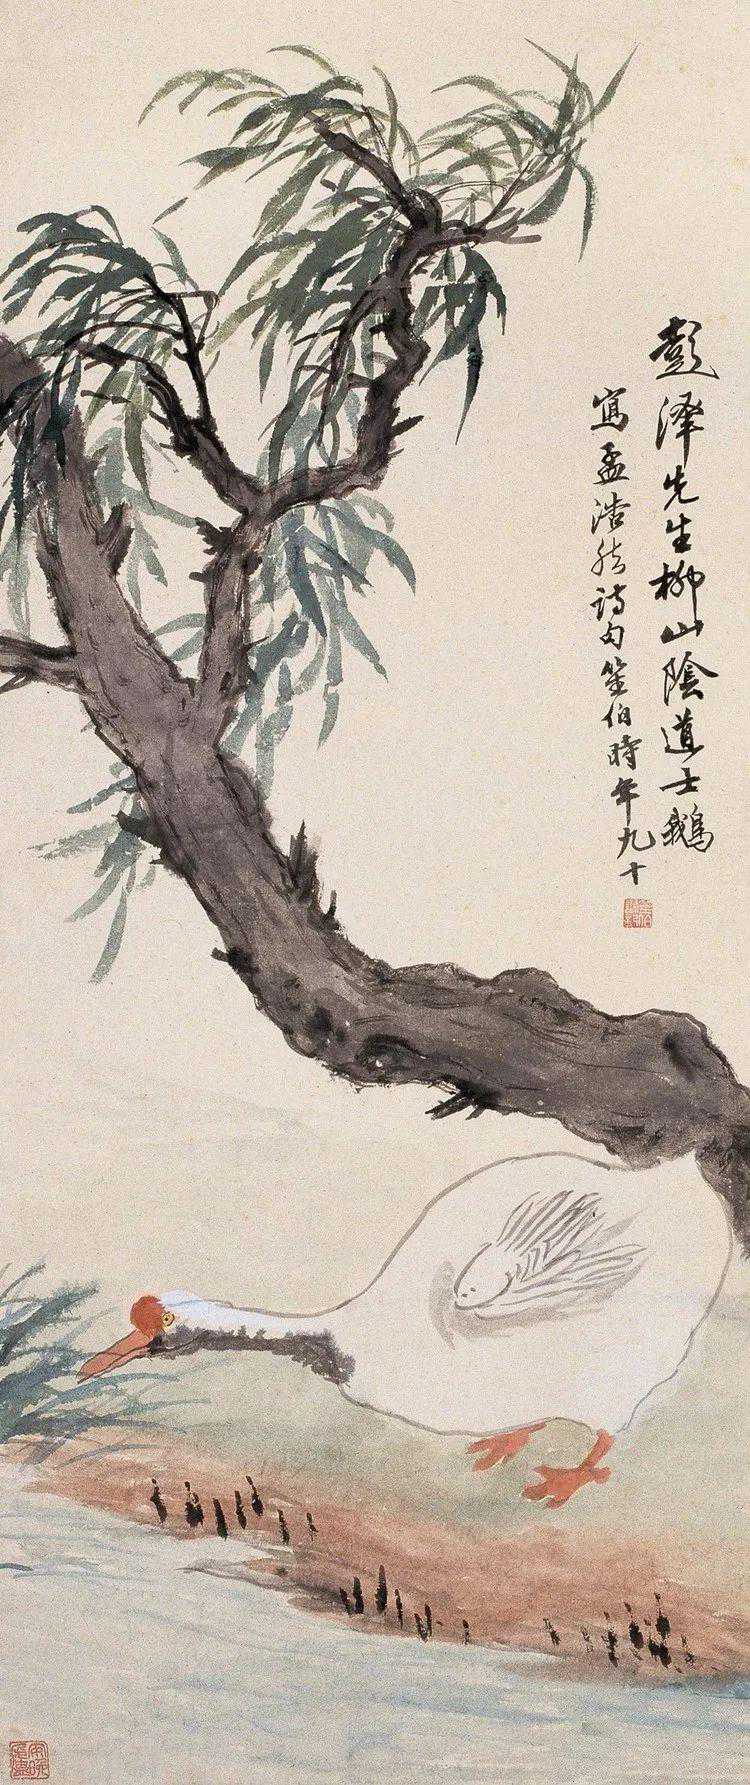 彭澤先生柳山陰道士鵝
寫孟浩然詩句笙伯時年九十